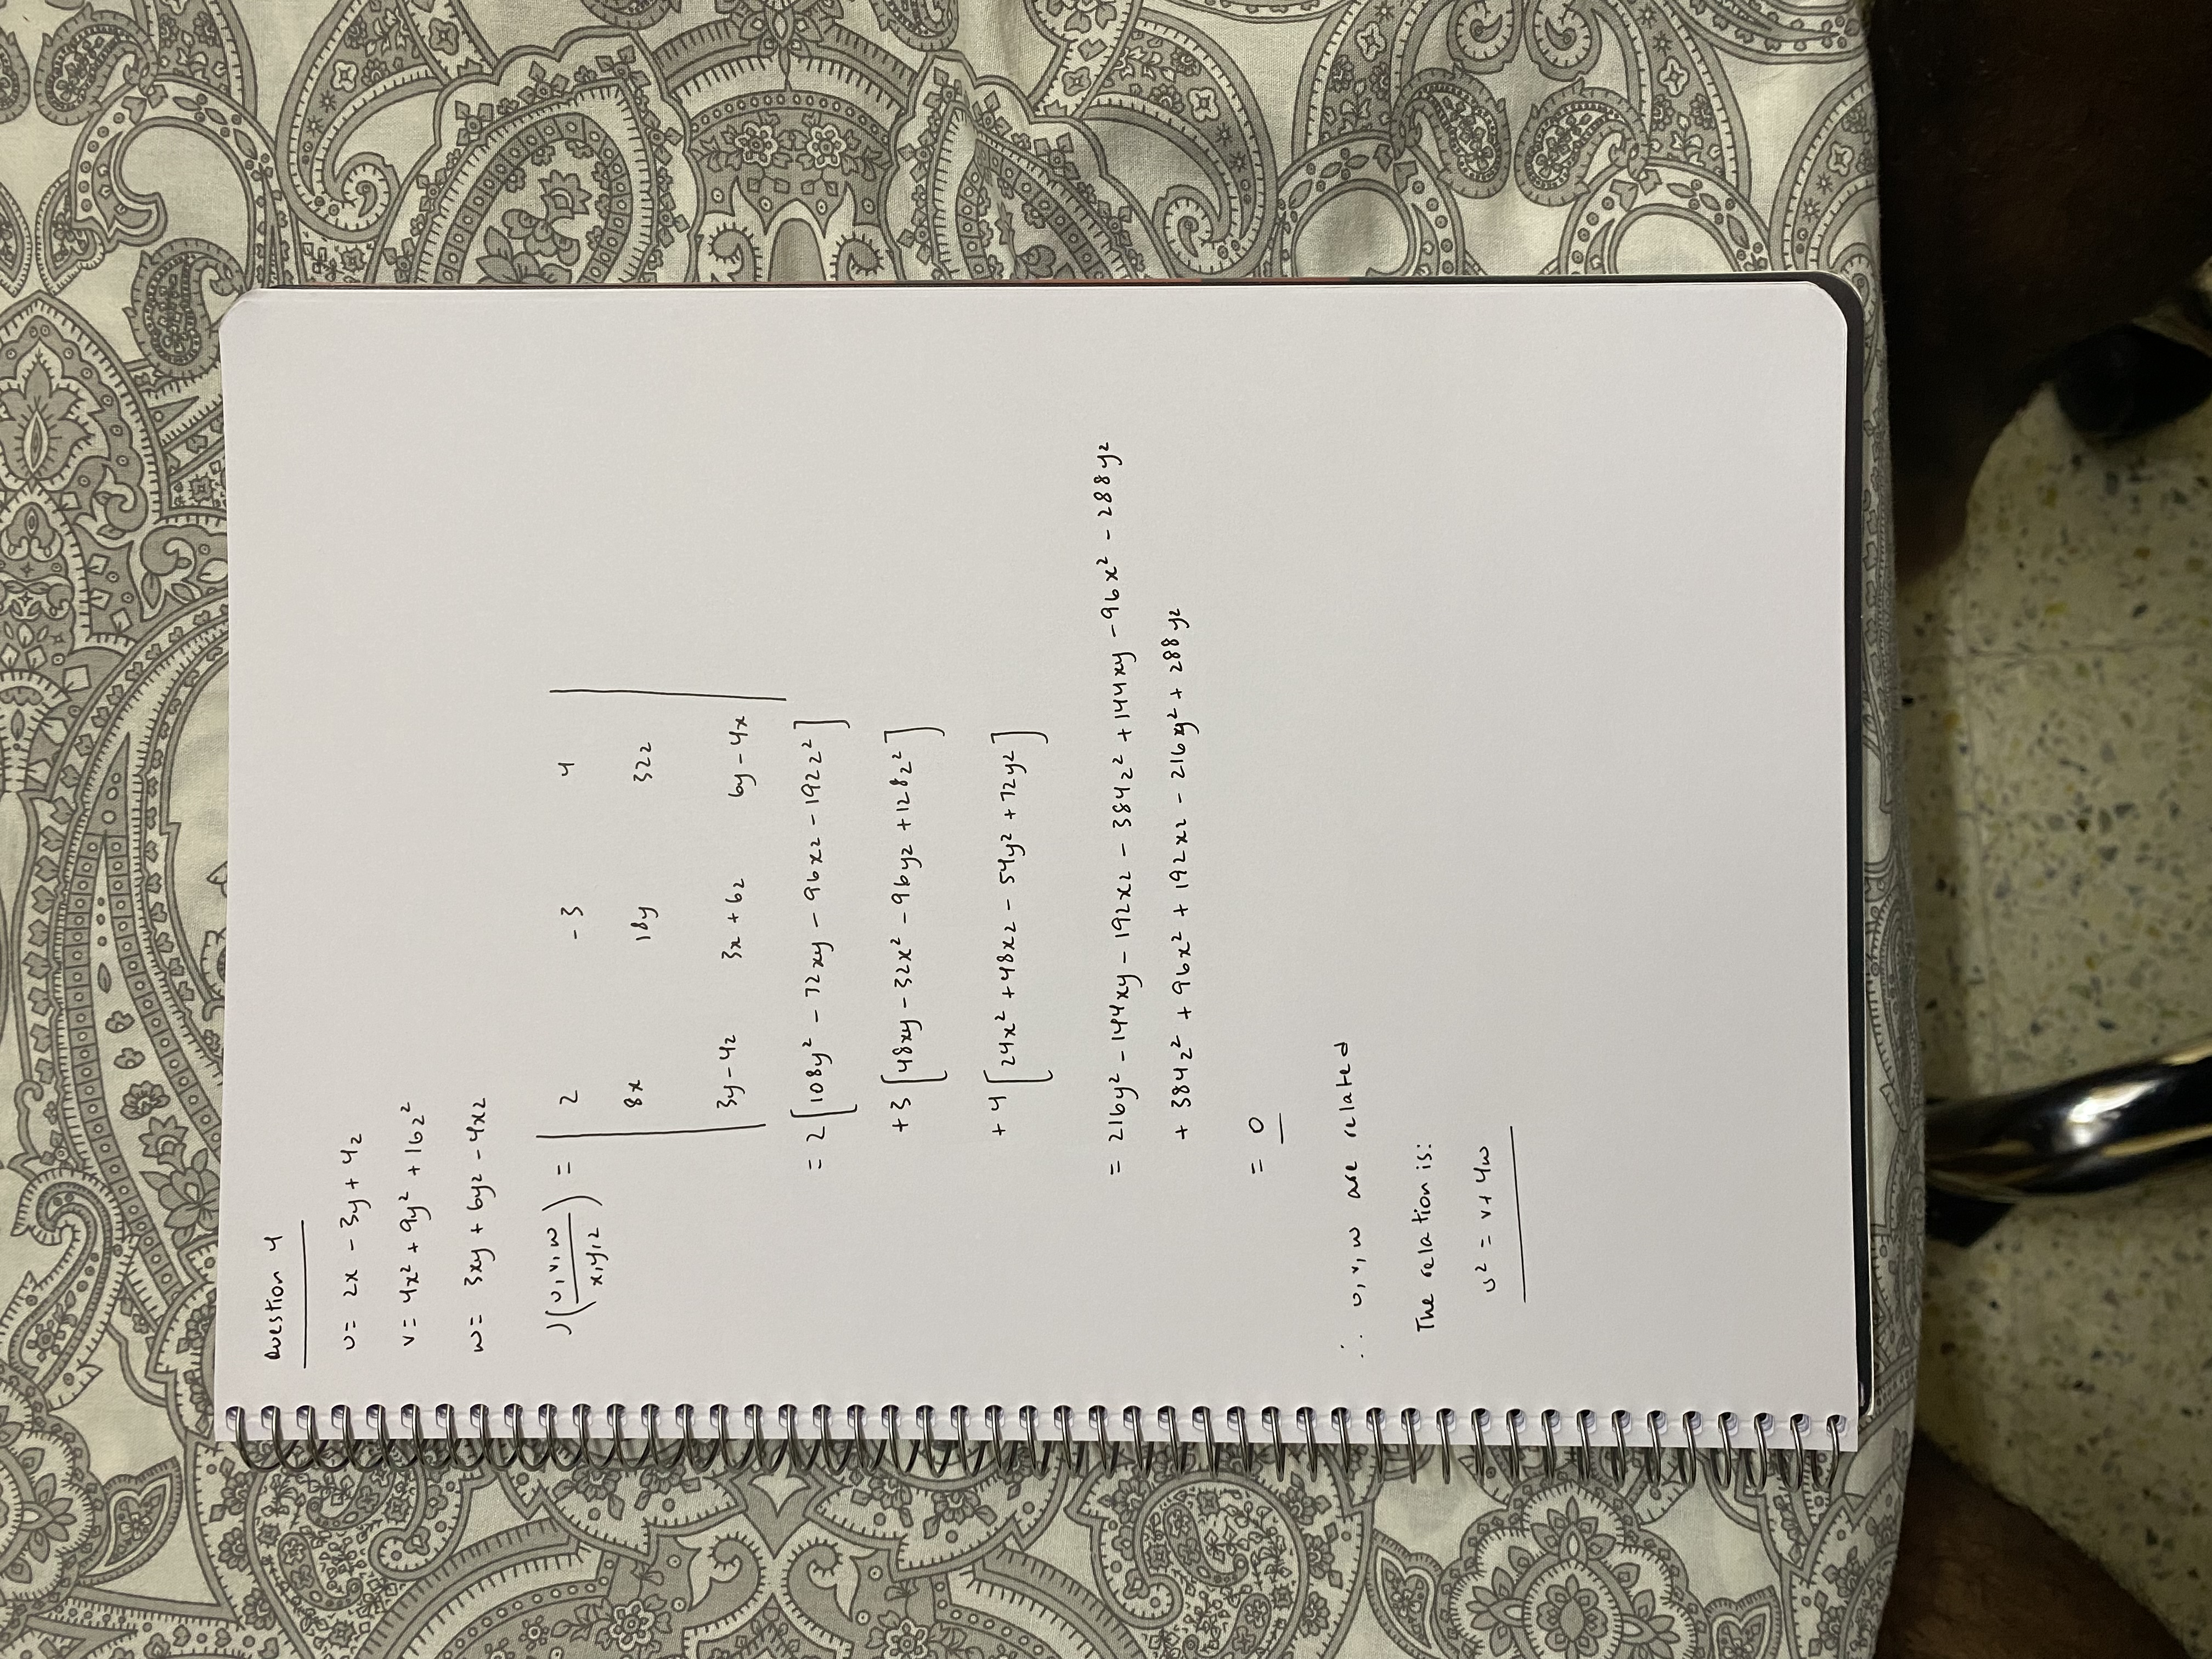 Question 4
u = 2x - 3y + 4z
v = 4x² + 9y² + 16z²
w = 3xy + 6yz - 4xz
J(u, v, w / x, y, z) = | 2 -3 4 |
8x 18y 32z
3y - 4z 3x + 6z 6y - 4x
= 2[108y² - 72xy - 96xz - 192z²]
+3[48xy - 32x² - 96yz + 128z²]
+4[24x² + 48xz - 54y² + 72yz]
= 216y² - 144xy - 192xz - 384z² + 144xy - 96x² - 288yz
+ 384z² + 96x² + 192xz - 216y² + 288yz
= 0
∴ u, v, w are related
The relation is:
u² = v + 4w